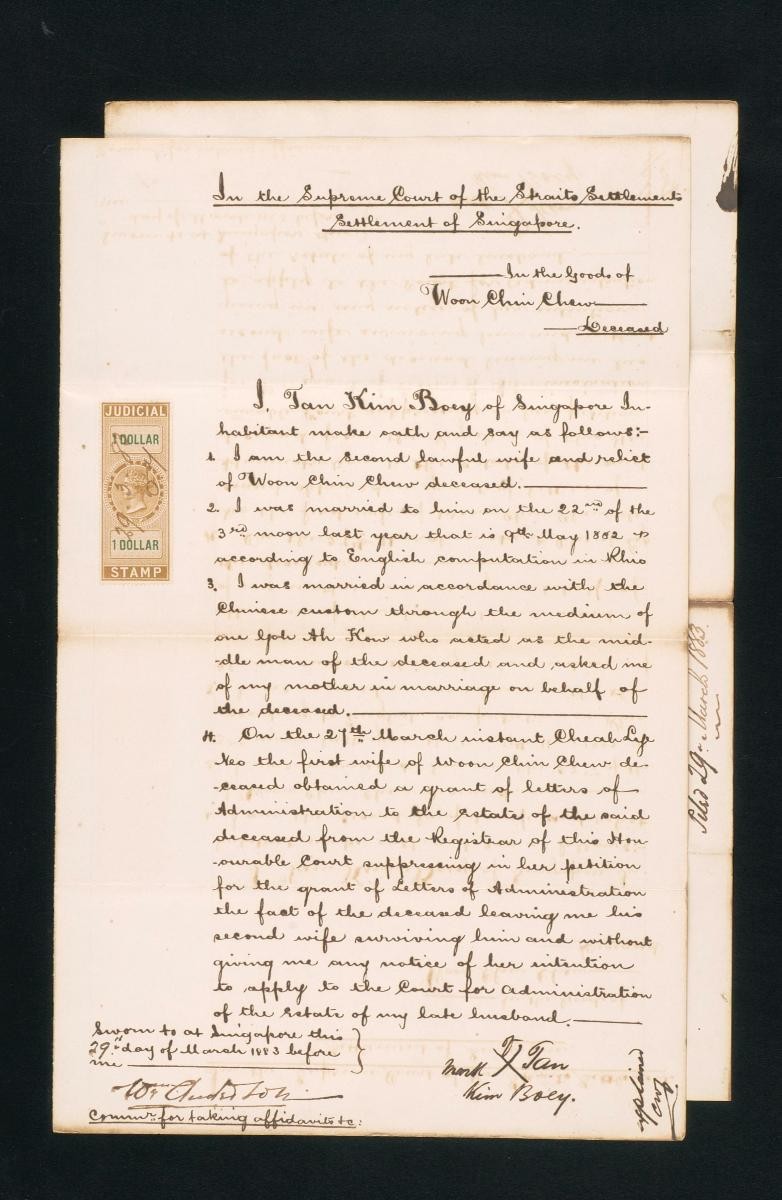 In the Supreme Court of the Straits Settlements
Settlement of Singapore.
In the Goods of
Woon Chin Chew
Deceased
JUDICIAL
1 DOLLAR
1 DOLLAR
STAMP
I, Tan Kim Boey of Singapore In-
habitant make oath and say as follows:-
1. I am the second lawful wife and relict
of Woon Chin Chew deceased.
2. I was married to him on the 22nd of the
3rd moon last year that is 9th May 1882
according to English computation in Rhio
3. I was married in accordance with the
Chinese custom through the medium of
one Goh Ah Kow who acted as the mid-
-dle man of the deceased and asked me
of my mother in marriage on behalf of
the deceased.
4. On the 27th March instant Cheah Lye
Neo the first wife of Woon Chin Chew de-
-ceased obtained a grant of letters of
Administration to the estate of the said
deceased from the Registrar of this Hon-
-ourable Court suppressing in her petition
for the grant of Letters of Administration
the fact of the deceased leaving me his
second wife surviving him and without
giving me any notice of her intention
to apply to the Court for administration
of the Estate of my late husband.
Sworn to at Singapore this
29th day of March 1883 before
me
Commr for taking affidavits &c:
Mark X Tan
Kim Boey.
Filed 29th March 1883.